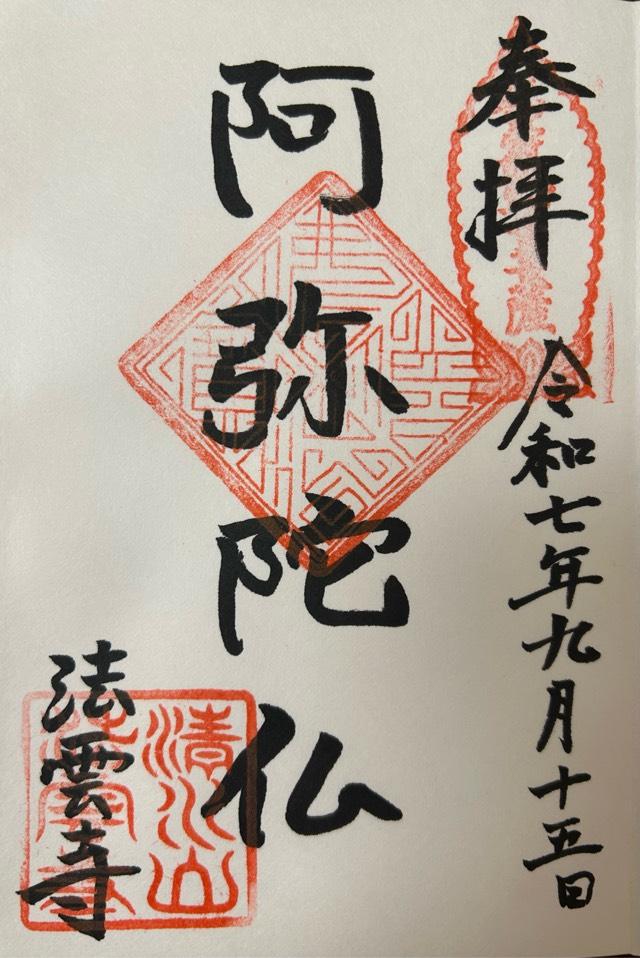 奉拝
令和七年九月十五日
阿弥陀仏
法雲寺
清水山
法雲寺